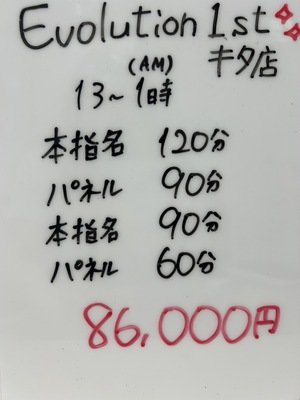 Evolution 1st
(AM) キタ店
13~1時
本指名 120分
パネル 90分
本指名 90分
パネル 60分
86,000円